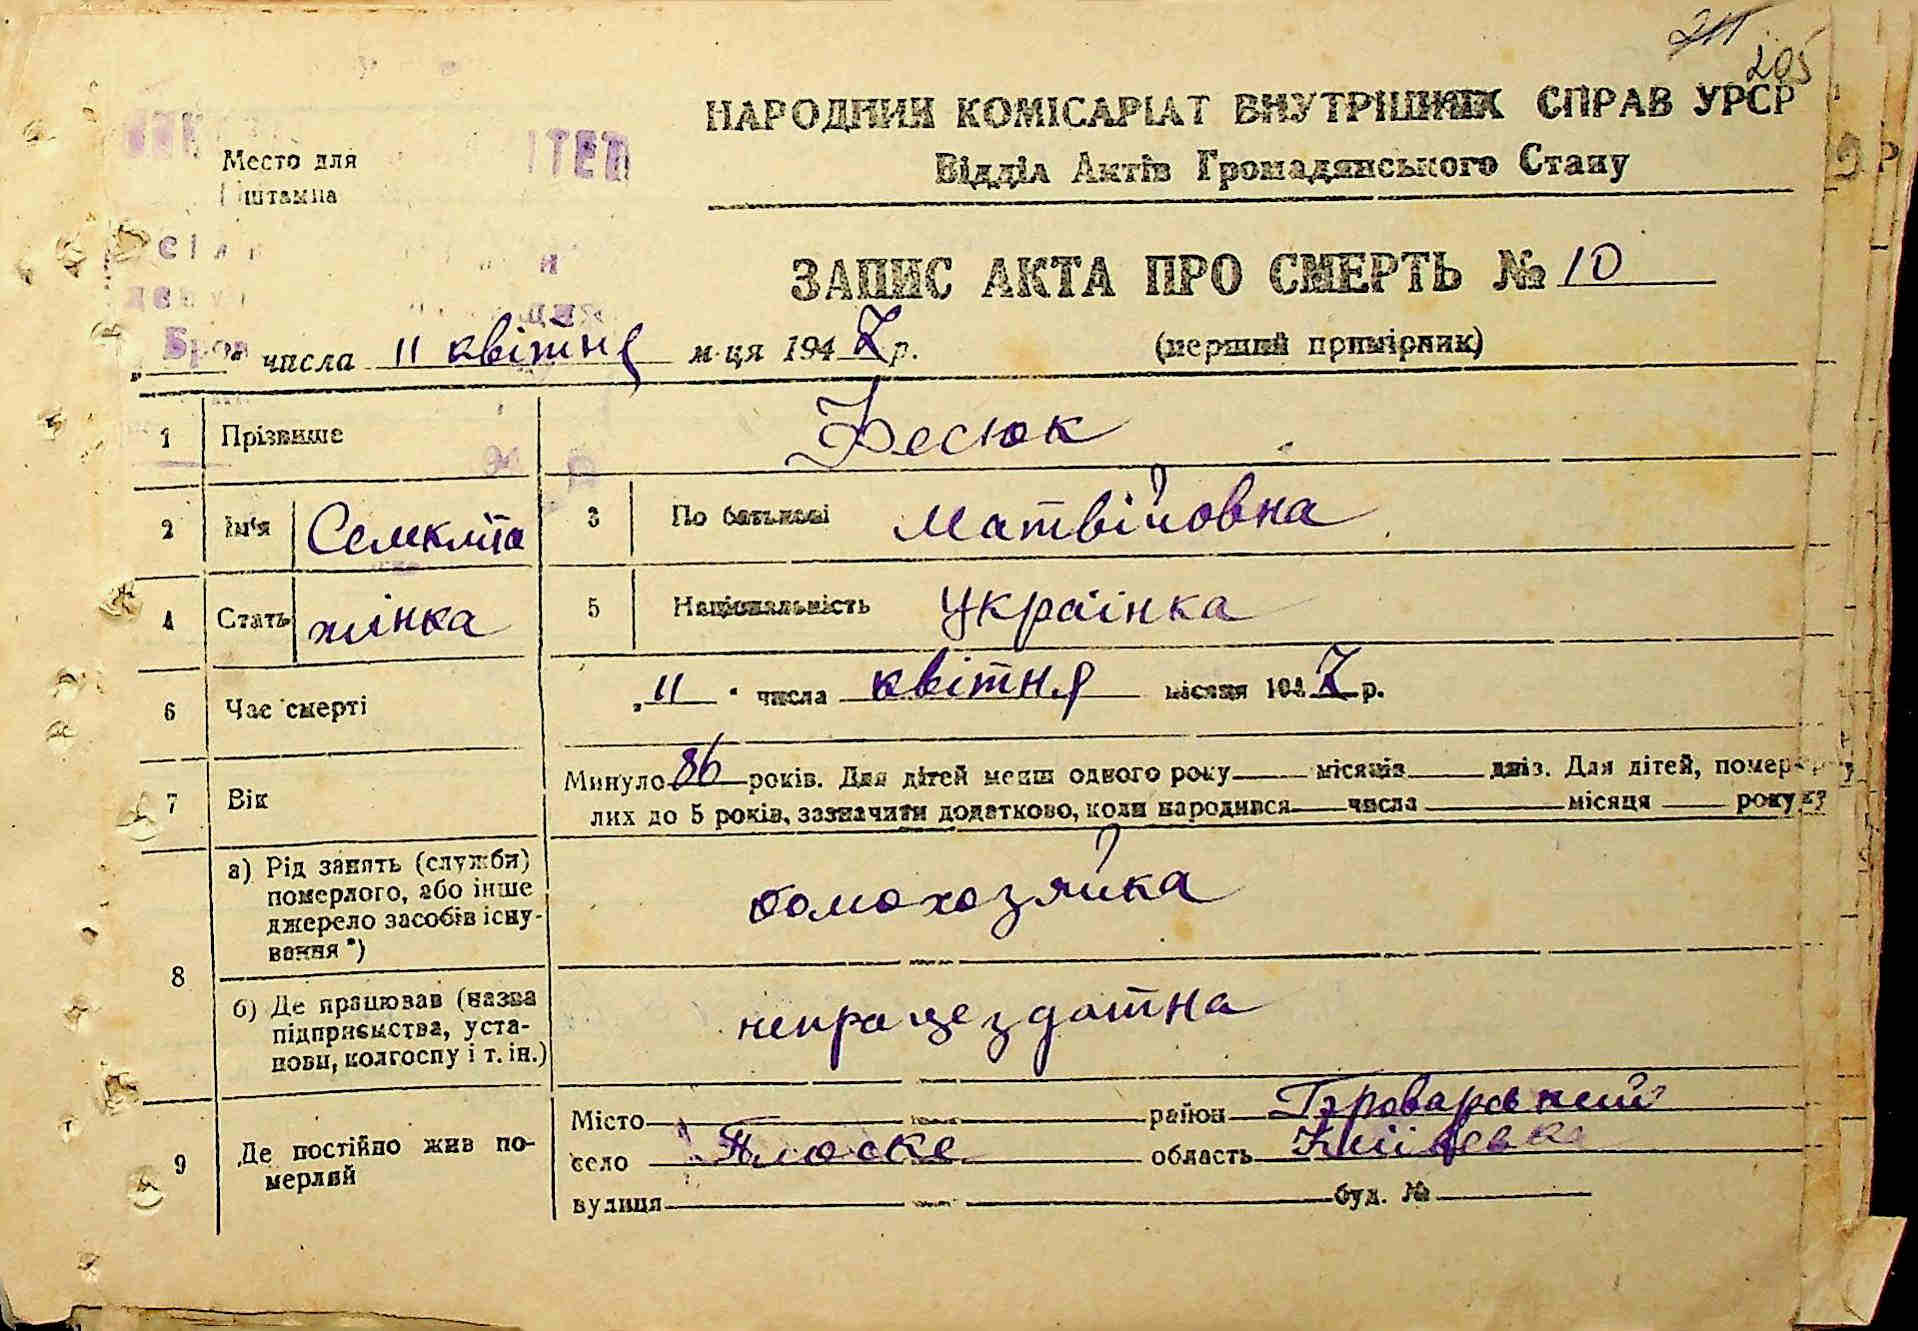 205
НАРОДНИЙ КОМІСАРІАТ ВНУТРІШНІХ СПРАВ УРСР
Відділ Актів Громадянського Стану
Место для
штампа
ЗАПИС АКТА ПРО СМЕРТЬ № 10
(перший примірник)
„ “ числа 11 квітня м-ця 1947 р.
1 Прізвище Фесюк
2 Ім'я 3 По батькові Матвійовна
4 Стать жінка 5 Національність Українка
6 Час смерті „11“ числа квітня місяця 1947 р.
7 Вік Минуло 86 років. Для дітей менш одного року місяців днів. Для дітей, помер-
лих до 5 років, зазначити додатково, коли народився числа місяця року
8 а) Рід занять (служби)
померлого, або інше
джерело засобів існу-
вання *)
домохозяйка
б) Де працював (назва
підприємства, уста-
нови, колгоспу і т. ін.)
непрацездатна
9 Де постійно жив по-
мерлий
Місто район Броварський
село Плоске область Київська
вулиця буд. №